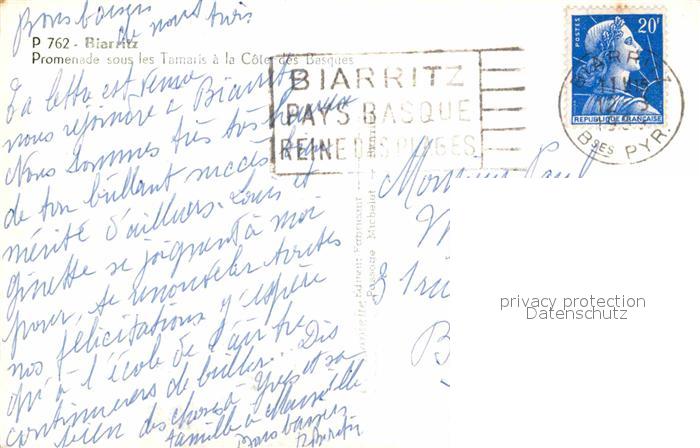 Bons baisers
de nous trois
P 762 - Biarritz
Promenade sous les Tamaris à la Côte des Basques
Ta lettre est venue
nous rejoindre à Biarritz
Nous sommes très très heureux
de ton brillant succès bien
mérité d'ailleurs. Louis et
Ginette se joignent à moi
pour te renouveler toutes
nos félicitations j'espère
qu'à l'école de l'air tu
continueras de briller. Dis
bien des choses à Yves et sa
famille à Marseille
Bons baisers
BIARRITZ
PAYS BASQUE
REINE DES PLAGES
POSTES
20F
REPUBLIQUE FRANÇAISE
BIARRITZ
Bses PYR.
Monsieur Paul
3
privacy protection
Datenschutz